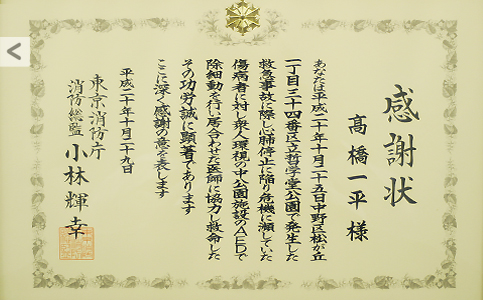 感謝状
高橋一平 様
あなたは平成二十年十月二十五日中野区松が丘
一丁目三十四番区立哲学堂公園で発生した
救急事故に際し心肺停止に陥り危機に瀕していた
傷病者に対し衆人環視の中公園施設のAEDで
除細動を行い居合わせた医師に協力し救命した
その功労誠に顕著であります
ここに深く感謝の意を表します
平成二十年十二月二十九日
東京消防庁
消防総監 小林輝幸